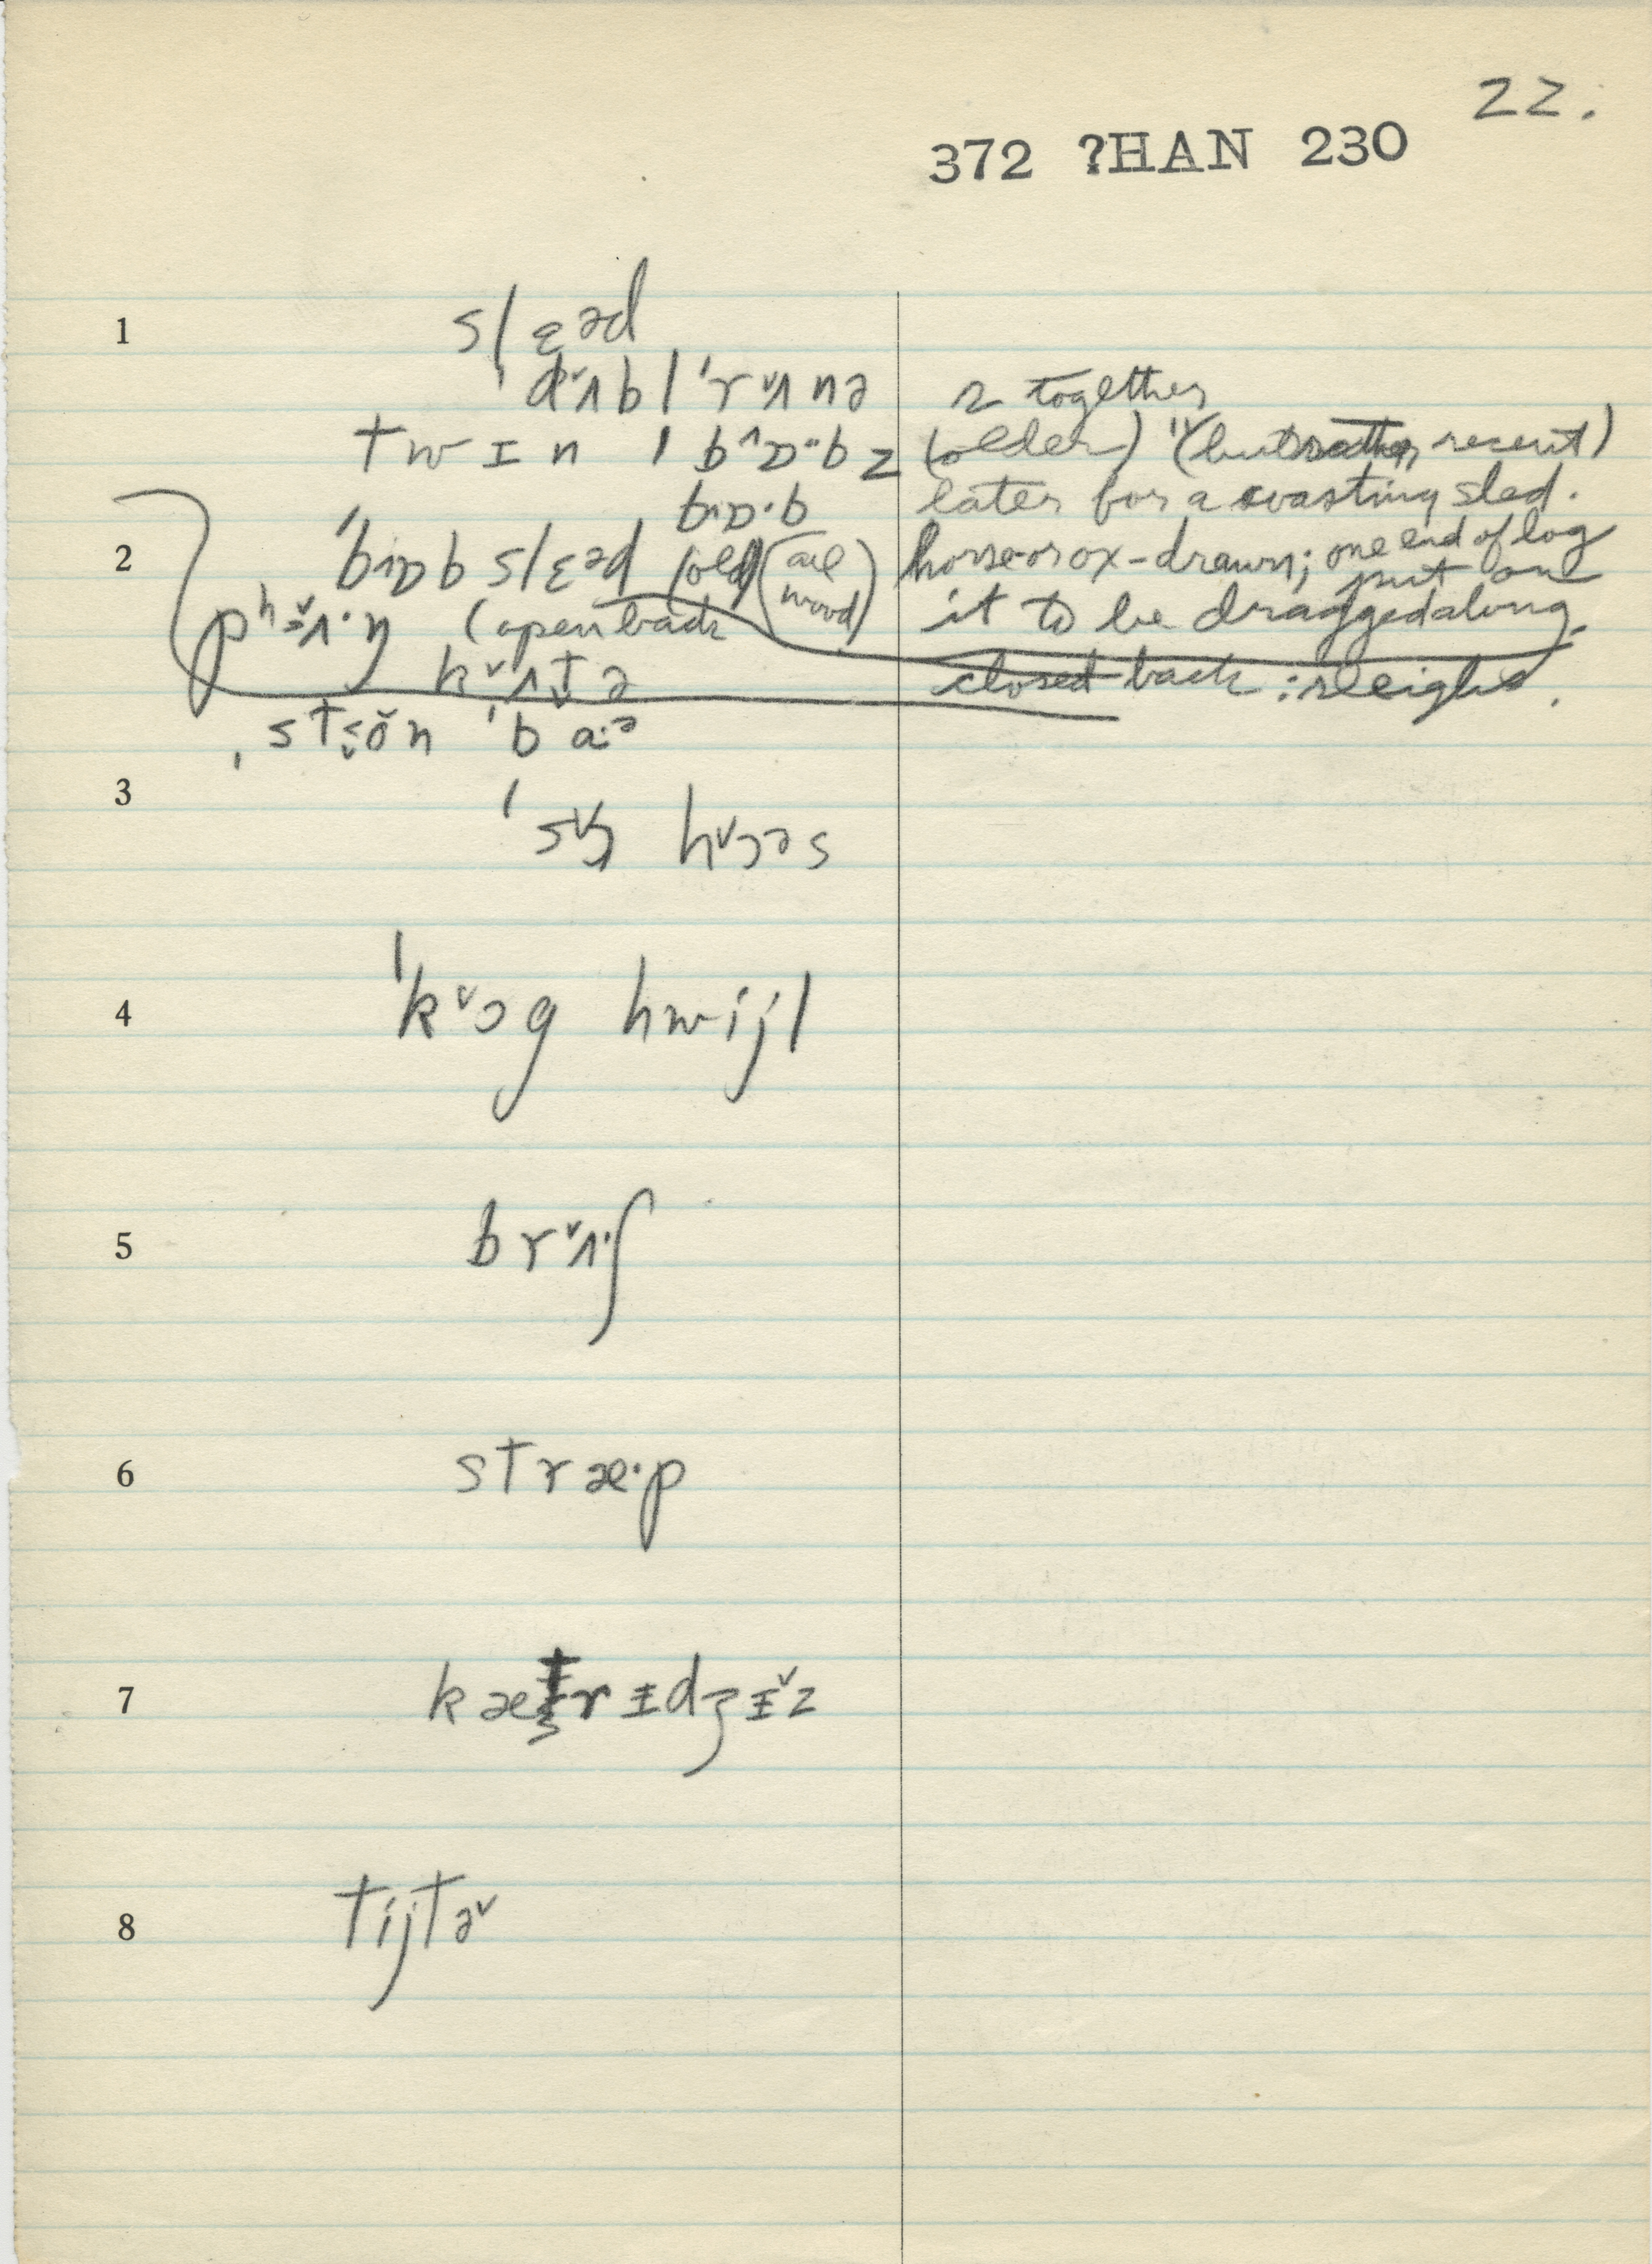 22.
372 ?HAN 230
1 slɛəd
ˈdˇʌblˈrˇʌnə 2 together
twɪn ˈbˆɒ·bz (older) " (but rather recent)
bɒ·b later for a coasting sled.
2 ˈbɒb slɛəd (old) (all wood) horse or ox-drawn; one end of log put on
pʰɜˇʌ·ŋ (open back it to be dragged along.
kˇʌtə closed back: sleighs.
stɜŏn ˈbaːə
3 ˈsˇɔ hˇɔəs
4 ˈkˇɔg hwijl
5 brˇʌ·ʃ
6 stræ·p
7 kætrɪdʒɪˇz
8 tijtəˇ